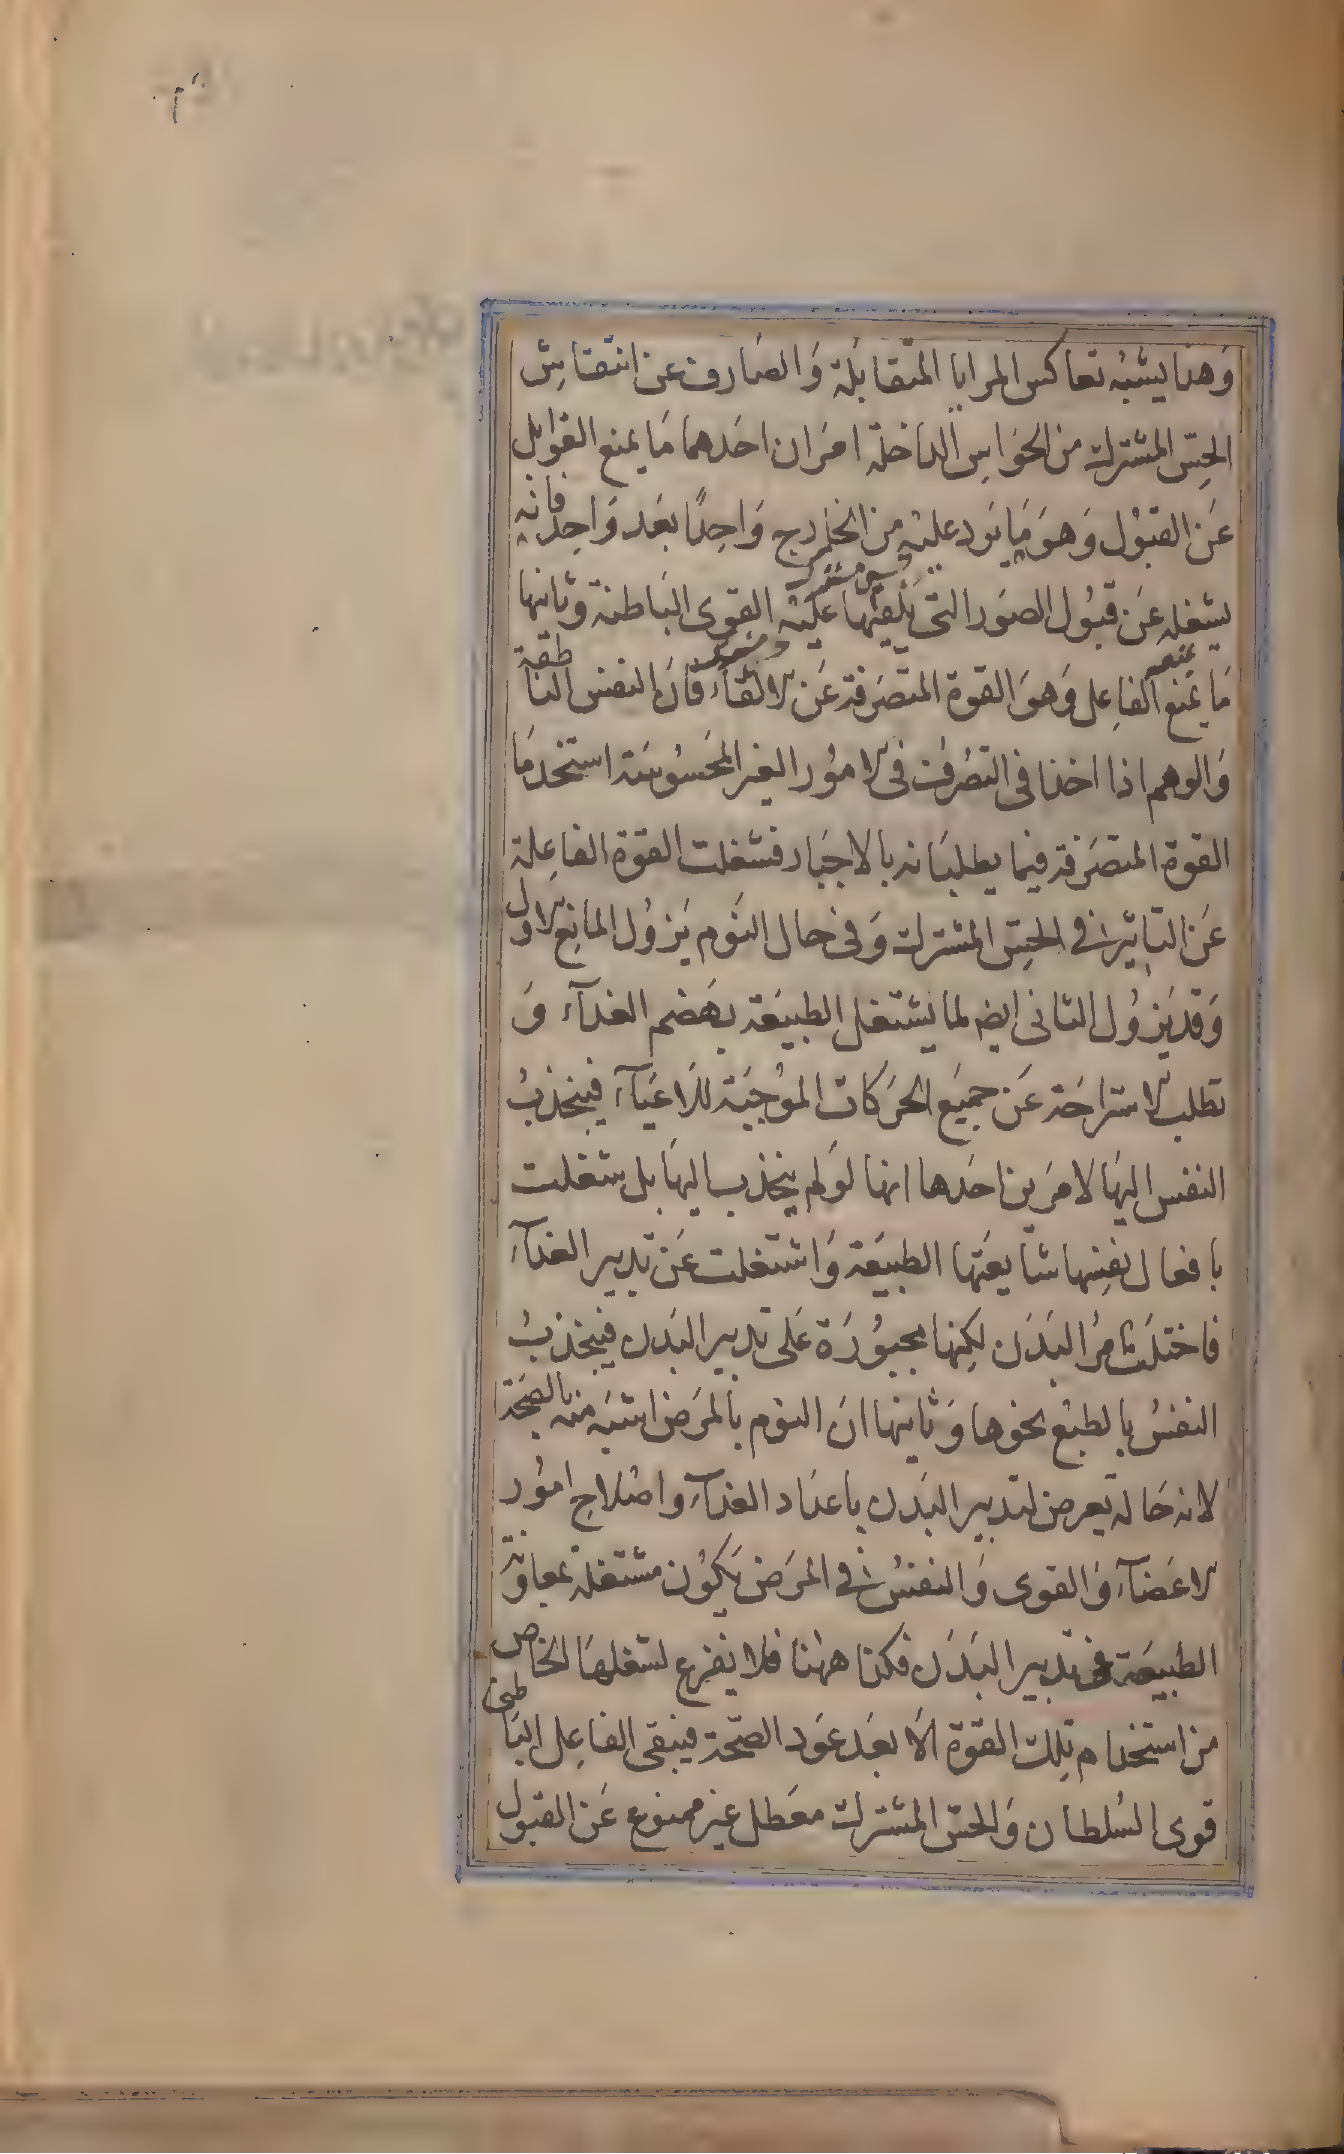 وَهذا يشبهُ تعاكس المرايا المتقابلة وَالصَارف عن انتقاش
الحِسّ المشترك من الحوَاس الداخلة امرَان احَدهما مَا يمنع القوابل
عَن القبُول وَهوَ مَا يَرد عليْه من الخارج وَاحِدًا بعَد وَاحِد فانه
يشغله عَن قبُول الصوَر التى يَلقيها عليْه القوى البَاطنة وثانيها
مَا يمنع الفاعِل وَهوَ القوة المتصَرفة عَن الالقآء فان النفس الناطقة
وَالوهم اذا اخذا فى التصُرف فى الامُور الغير المحَسُوسَة استخدمَا
القوة المتصَرفة فيما يطلبَانه بالاجبَار فشغلت القوة الفاعِلة
عَن التاثير فى الحِسّ المشترك وَفى حال النَوم يَزوُل المانِع الاول
وَقد يَزوُل الثانى ايضا لما يشتغل الطبيعَة بهَضم الغذآء وَ
تطلب الاستراحَة عَن جميَع الحَركات الموُجبَة للاعيَآء فينجذبُ
النفس اليهَا لامرَين احَدها انها لوَلم ينجذب اليهَا بل شغلت
بافعال نفسِها شايعَتها الطبيعَة وَاشتغلت عَن تدبير الغذآء
فاختلَت امرُ البَدَن لكِنها مجبوُرَة عَلى تدبير البَدن فينجذبُ
النفسُ بالطبْع نحوها وَثانيها انَ النوم بالمرَض اشبَه منه بالصحَة
لانه حَالة تعرض لتدبير البَدن باعدَاد الغذآء واصْلاح امُور
الاعضَآء وَالقوى وَالنفسُ فى المرَض يَكوُن مشتغلة بمعاونة
الطبيعَة فى تدبير البَدَن فكذا ههُنا فلا يفرغ لشغلهَا الخاص
من استخدام تِلك القوة الّا بعَد عَود الصّحة فيبقى الفاعِل البَاطنى
قوى السُلطان وَالحسّ المشترك معَطل غير ممنوع عَن القبول